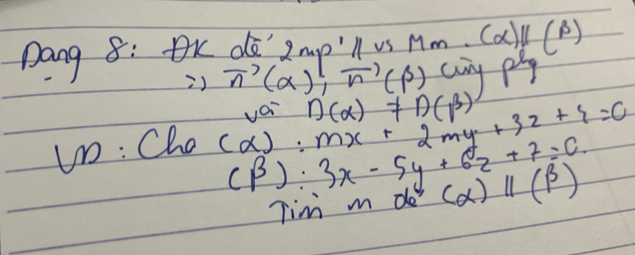 Dạng 8: ĐK để 2 mp // vs nhau. (α) // (β)
=> n⃗(α); n⃗(β) cùng phg
và D(α) ≠ D(β)
VD: Cho (α): mx + 2my + 3z + 4 = 0
(β): 3x - 5y + 6z + 7 = 0.
Tìm m để (α) // (β)